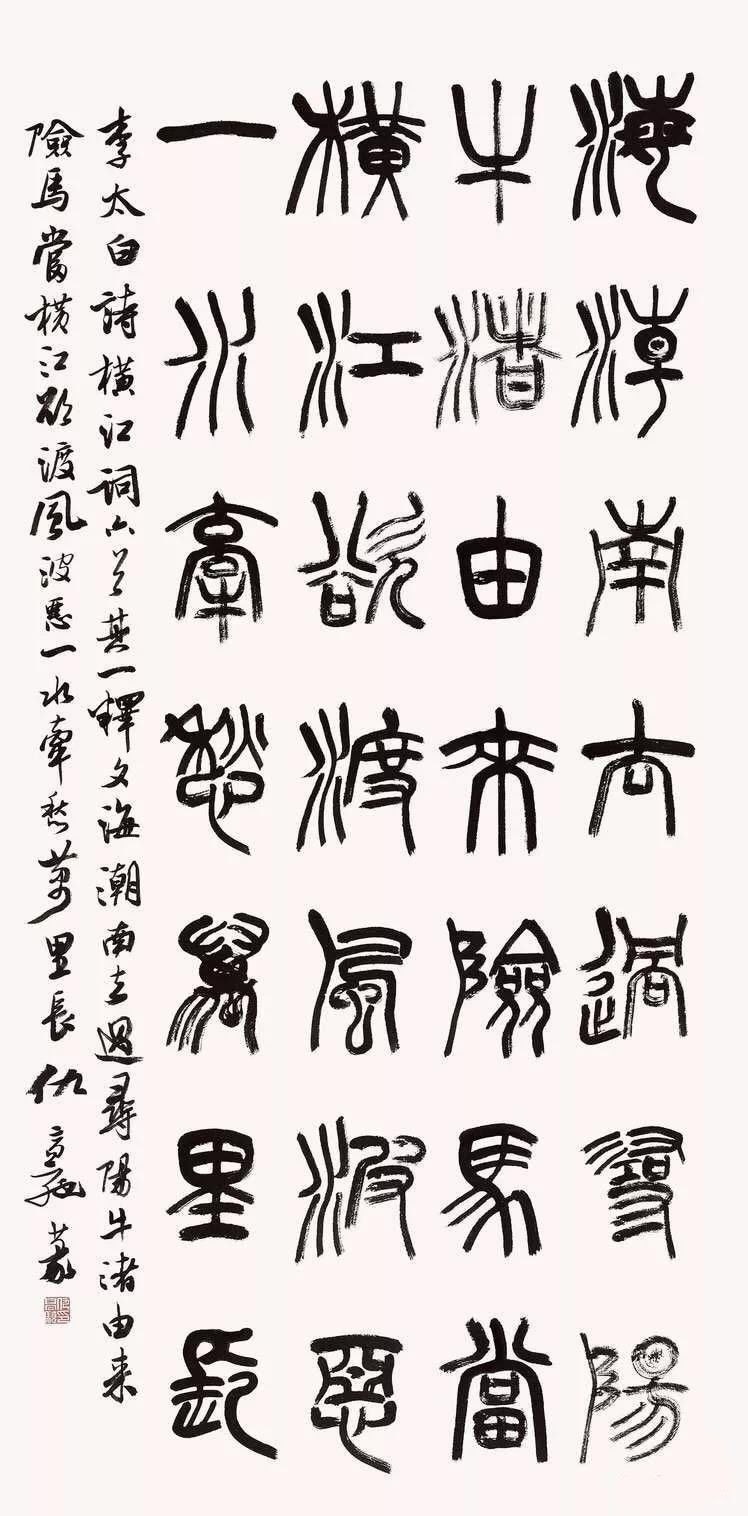 海潮南去過尋陽
牛渚由來險馬當
橫江欲渡風波惡
一水牽愁萬里長
李太白詩橫江詞六首其一釋文海潮南去過尋陽牛渚由来
險馬當橫江欲渡風波惡一水牽愁萬里長仇高馳篆